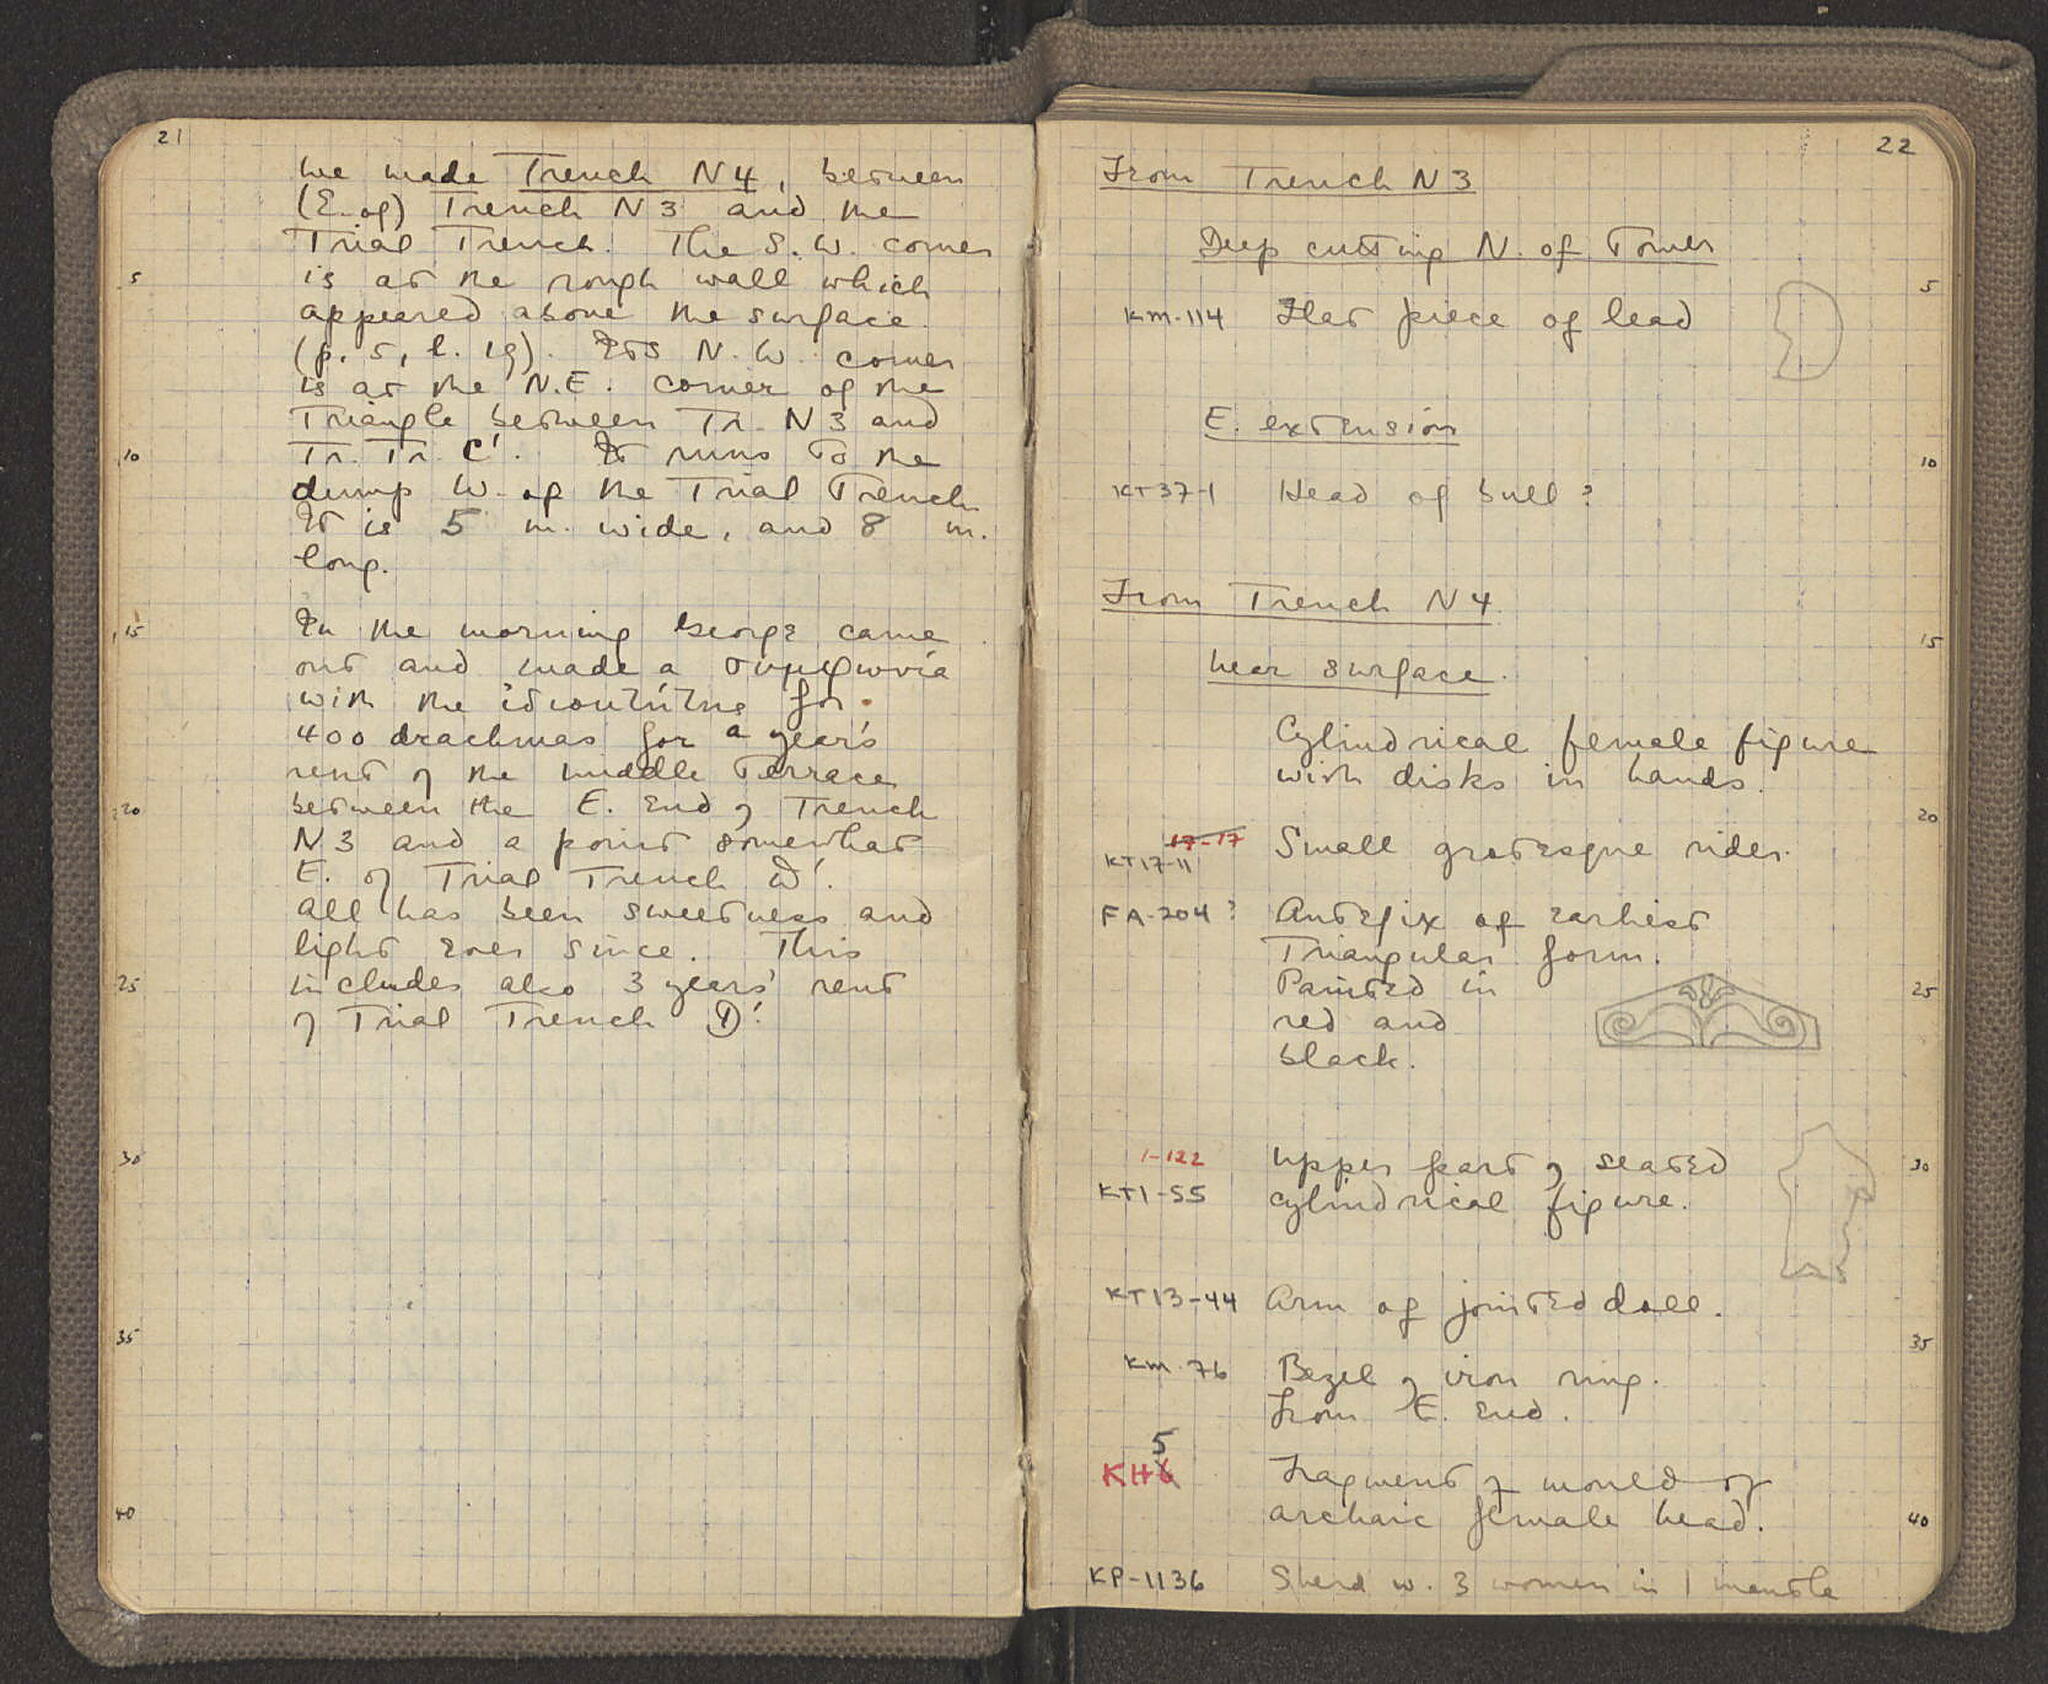 21
We made Trench N4, between
(E. of) Trench N3 and the
Trial Trench. The S.W. corner
5 is at the rough wall which
appeared above the surface
(p. 5, l. 19). Its N.W. corner
is at the N.E. corner of the
Triangle between Tr. N3 and
10 Tr. Tr. C'. It runs to the
dump W. of the Trial Trench
It is 5 m. wide, and 8 m.
long.
15 In the morning George came
out and made a συμφωνία
with the ἰδιοκτήτης for
400 drachmas for a year's
rent of the middle terrace
20 between the E. end of Trench
N3 and a point somewhat
E. of Trial Trench D'.
All has been sweetness and
light ever since. This
25 includes also 3 years' rent
of Trial Trench D'.
30
35
40
22
From Trench N3
Deep cutting N. of Tower
5
KM-114 Flat piece of lead
E. extension
10
KT37-1 Head of bull?
From Trench N4
15
Near surface.
Cylindrical female figure
with disks in hands.
20
17-17
KT17-11 Small grotesque rider.
FA-204? Antefix of earliest
Triangular form.
Painted in 25
red and
black.
1-122 Upper part of seated 30
KT1-55 cylindrical figure.
KT13-44 Arm of jointed doll.
35
KM-76 Bezel of iron ring.
From E. end.
5
KH6 Fragment of mould of
archaic female head. 40
KP-1136 Sherd w. 3 women in 1 mantle